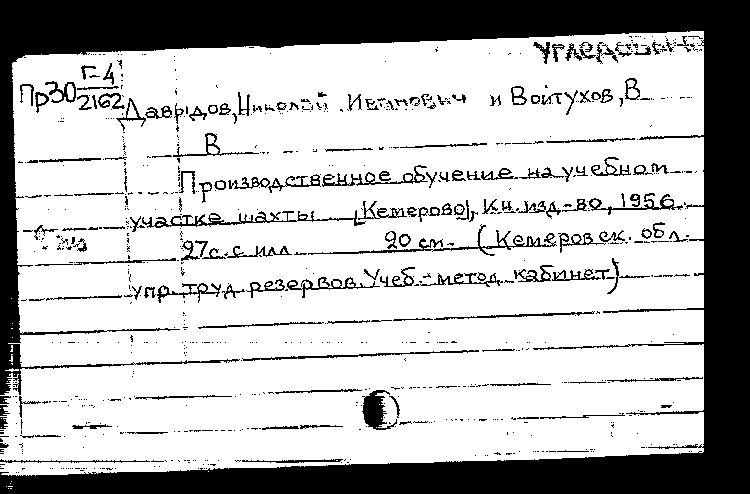 Угледобыча
Пр30 Г-4
2162
Давыдов, Николай Иванович и Войтухов, В
В
Производственное обучение на учебном
участке шахты [Кемерово], Кн. изд-во, 1956.
27с. с илл 20 см. (Кемеровск. обл.
упр. труд. резервов. Учеб.-метод. кабинет)